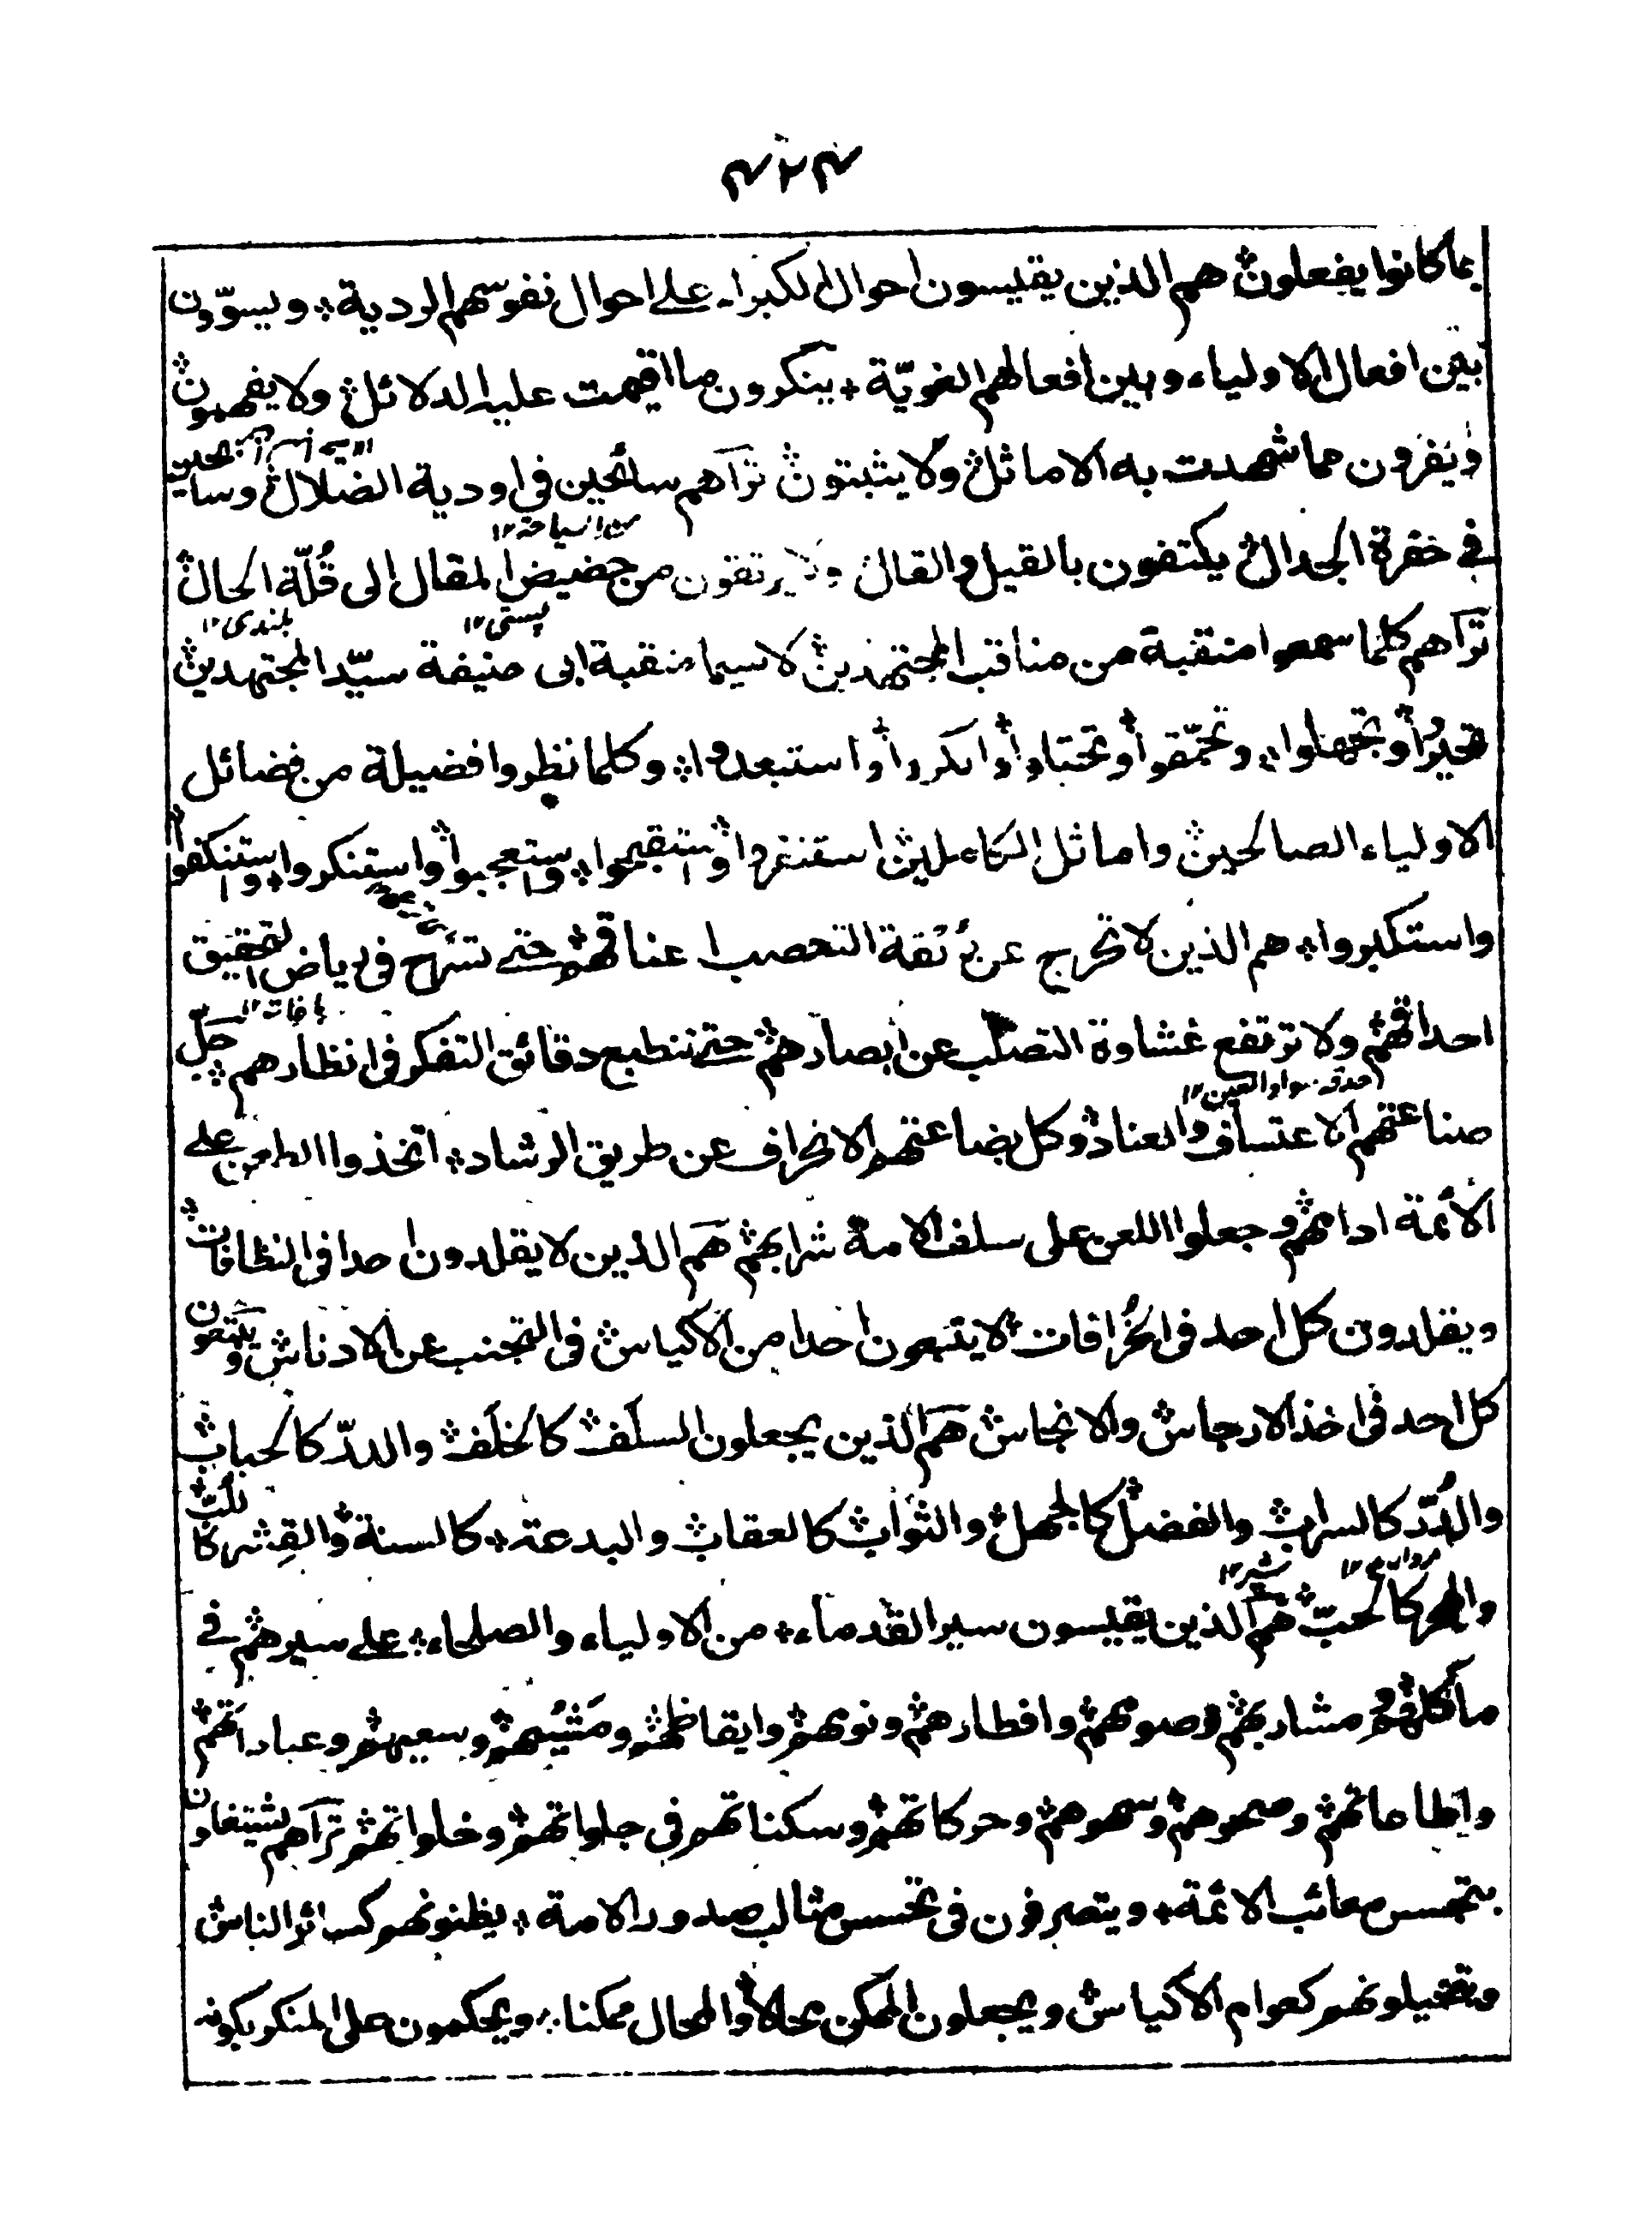 ٤٢٤
بما كانوا يفعلون هم الذين يقيسون احوال الكبراء على احوال نفوسهم الردية ويسوّون
بين افعال الاولياء وبين افعالهم الغويّة ينكرون ما اقيمت عليه الدلائل ولا يفهمون
ويفرون مما شهدت به الاماثل ولا يثبتون تراهم سائحين في اودية الضلال
من السياحة ١٢
في حفرة الجدال يكتفون بالقيل والقال ولا يرتقون من حضيض المقال الى قُلّة الحال
پستی ١٢ بلندی ١٢
تراهم كلما سمعوا منقبة من مناقب المجتهدين لا سيما منقبة ابى حنيفة سيّد المجتهدين
تحيروا وتجهلوا وتحمّقوا وانكروا واستبعدوا وكلما نظروا فضيلة من فضائل
الاولياء الصالحين واماثل الكاملين استنفروا واستقبحوا واستعجبوا واستنكروا واستنكفوا
واستكبروا هم الذين لا تخرج عن ربقة التعصب اعناقهم حتى تسرح في رياض التحقيق
باغات ١٢
احداقهم ولا ترتفع غشاوة التصلب عن ابصارهم حتى تنطبع دقائق التفكر في انظارهم جلّ
حدقه سواد العين ١٢
صناعتهم الاعتساف والعناد وكل بضاعتهم الانحراف عن طريق الرشاد اتخذوا الطعن على
الأئمة ادامهم وجعلوا اللعن على سلف الامة شرابهم هم الذين لا يقلدون احدا في النظافات
ويقلدون كل احد في الخُرافات لا يتبعون احدا من الأكياس في التجنب عن الادناس ويتبعون
كل احد في اخذ الارجاس والانجاس هم الذين يجعلون السلَف كالخلَف والدرّ كالحباب
والدُرّ كالسراب والفضل كالجهل والثواب كالعقاب والبدعة كالسنة والقِشر كاللُبّ
مرواريد ١٢ شير ١٢
كالحبّ هم الذين يقيسون سير القدماء من الاولياء والصلحاء على سيرهم في
مأكلهم ومشاربهم وصومهم وافطارهم ونومهم وايقاظهم ومَشْيُهم وسعيهم وعباداتهم
واطاعاتهم وصحوهم وسهوهم وحركاتهم وسكناتهم في جلواتهم وخلواتهم تراهم يشتغلون
بتجسس معائب الائمة ويتصرفون في تحسس مثالب صدور الامة يظنونهم كسائر الناس
وتخيلونهم كعوام الأكياس ويجعلون الممكن محالا والمحال ممكنا ويحكمون على المنكر بكونه